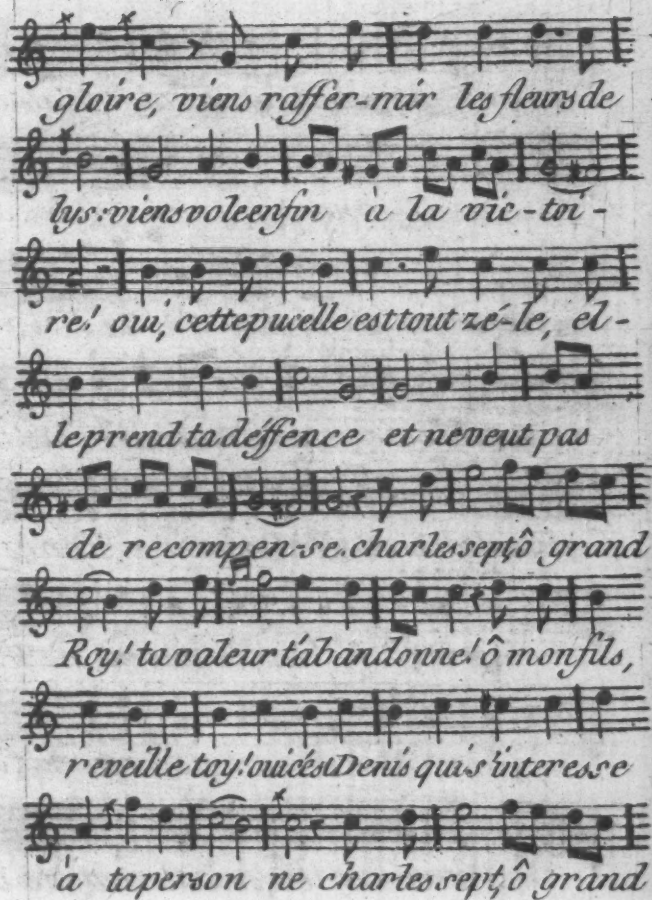 gloire, viens raffer-mir les fleurs de
lys: viens vole enfin à la vic-toi-
re! oui, cette pucelle est tout zé-le, el-
le prend ta déffence et ne veut pas
de recompen-se. charles sept, ô grand
Roy! ta valeur t'abandonne! ô mon fils,
reveille toy! oui c'est Denis qui s'interesse
à ta person ne charles sept, ô grand